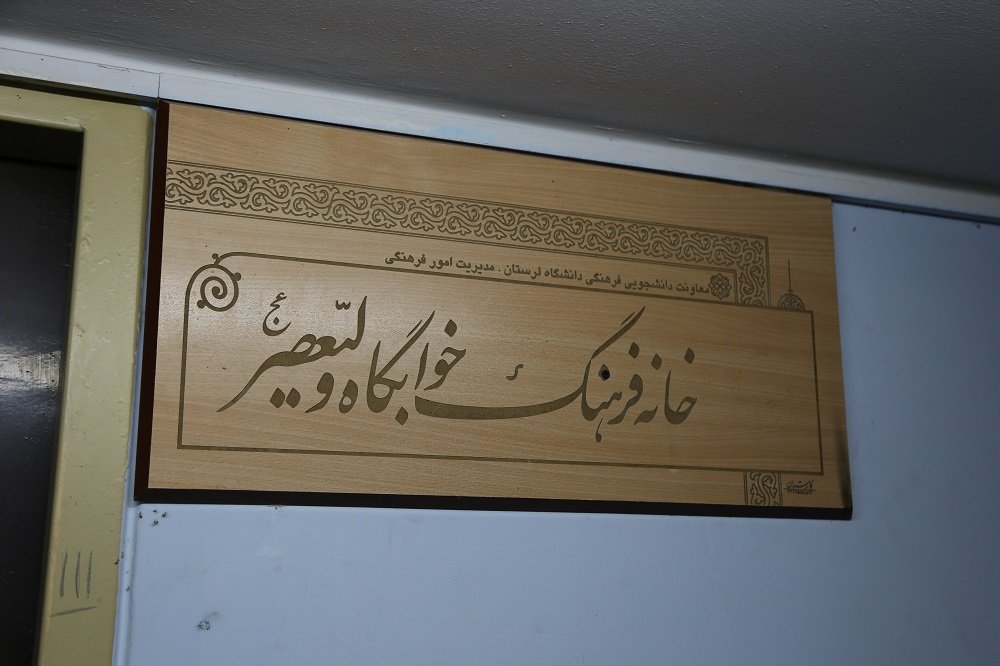 معاونت دانشجویی فرهنگی دانشگاه لرستان . مدیریت امور فرهنگی
خانه فرهنگ خوابگاه ولیعصر عج
111